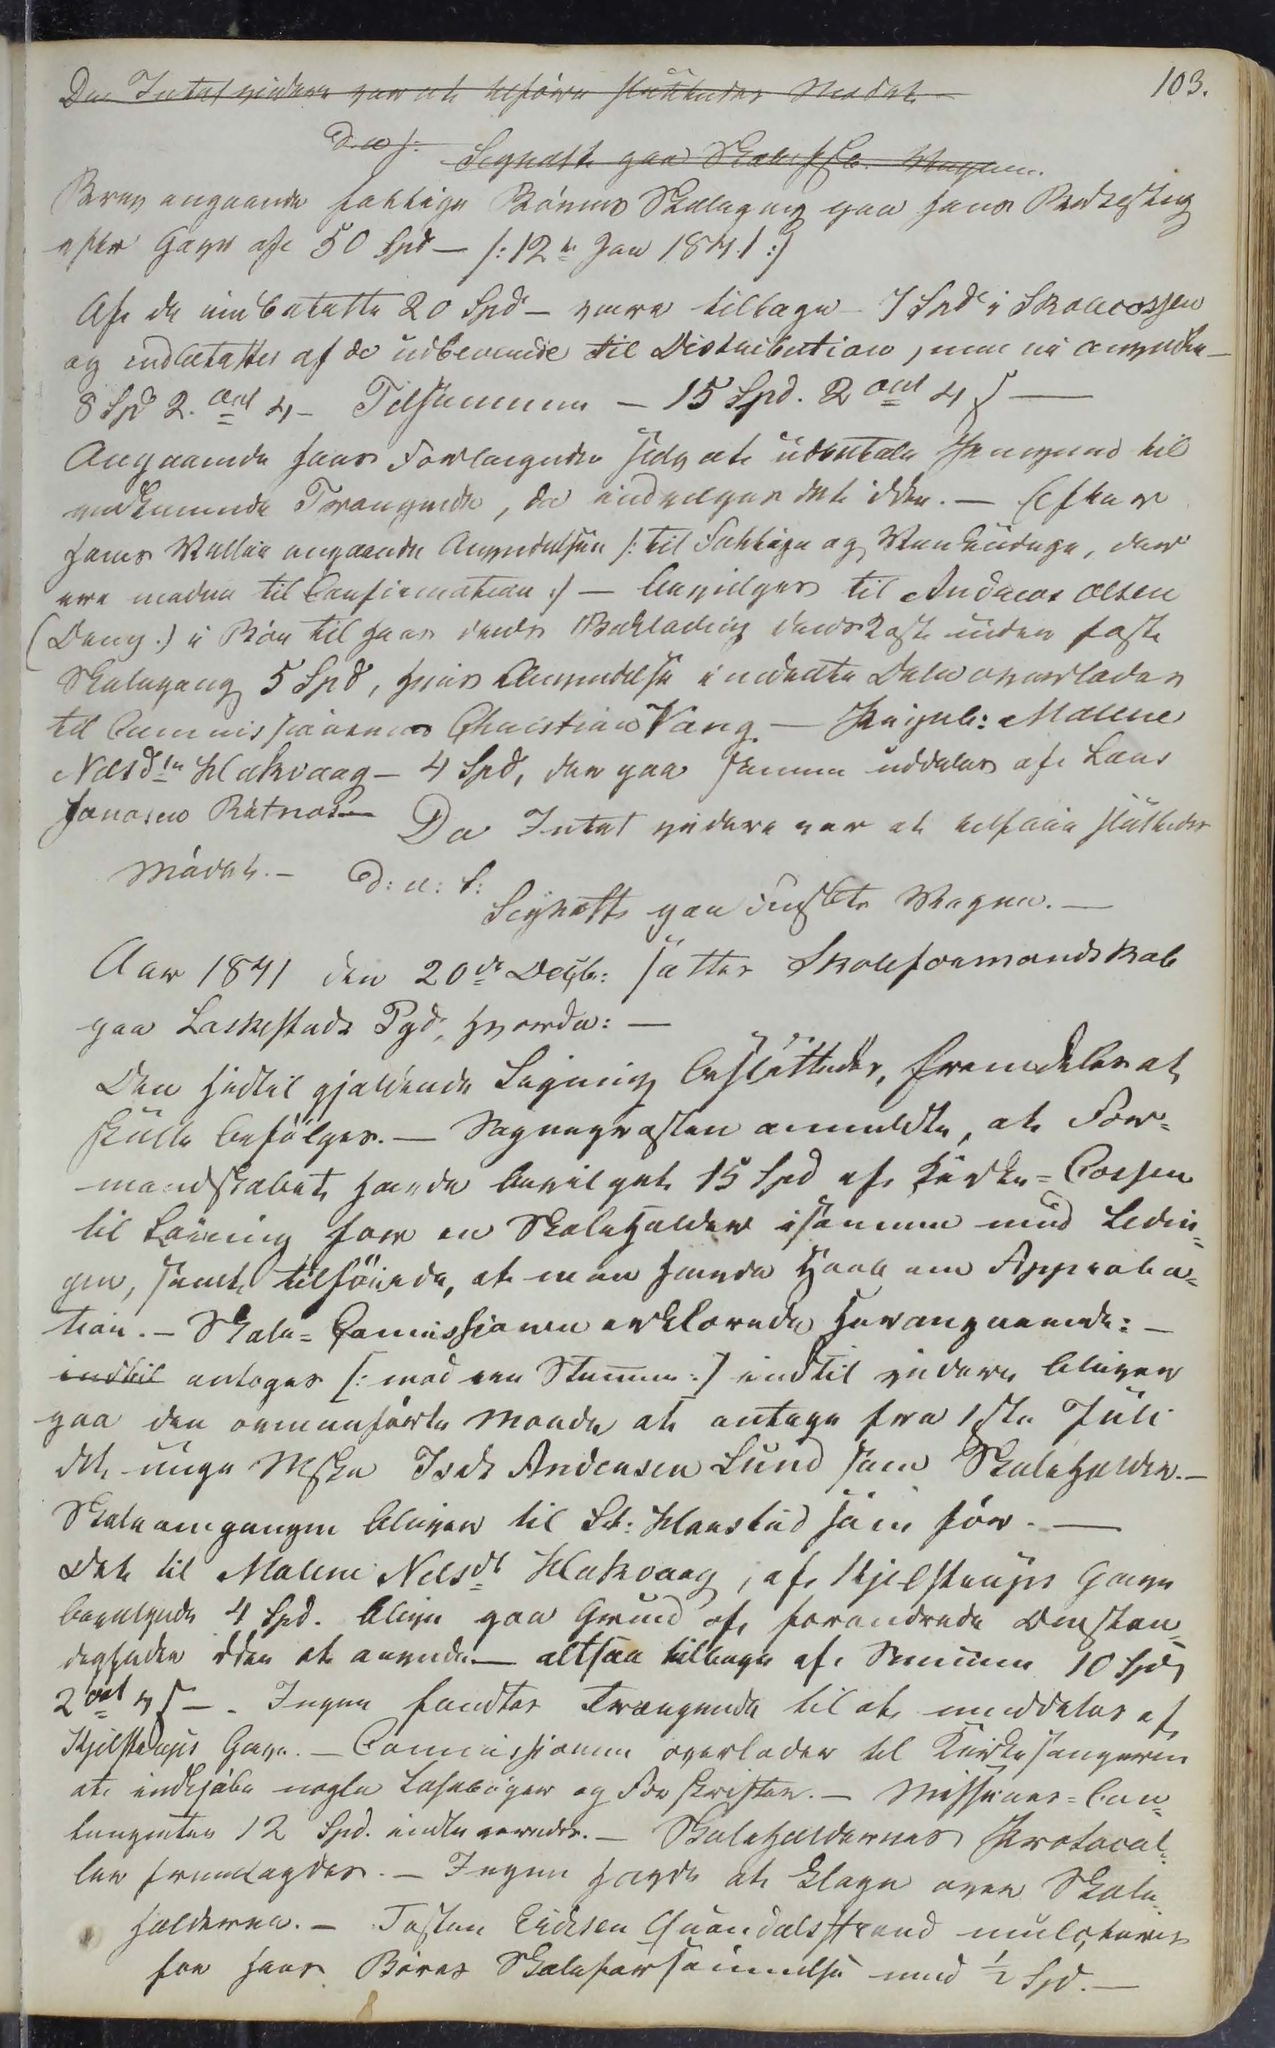 103.
Da Intet videre var at tilføre sluttedes Mødet. —
D. u. s.
Sognepr. paa Skolefsk. Vegne.
Brev angaaende fattige Børns Skolegang paa hans
efter Gave af 50 Spd — /: 12te Jan 1841 :/
Af de 20 Spd — vare tilbage — 7 Spd i Skolecassen
og af de til Distribution, men ei anvendte —
8 Spd 2 ort 4 — Tilsammen — 15 Spd. 2 ort 4 s —
Angaaende hans Forlangende selv at udbetale Pengene til
vedkommende Trængende, da indvilges det ikke. — Efter
hans angaaende Anvendelsen /: til Fattige og, der
ere modne til Confirmation :/ — bevilges til Andreas Olsen
(Deng.) i til hans Beklædning uden
Skolegang 5 Spd, hvis Anvendelse overlades
til Commissionairen Christian Vang. — Pigeb: Malene
Nelsdtr Hakvaag — 4 Spd, der paa samme uddeles af Lars
Jonasen — Da Intet videre var at tilføie sluttedes
Mødet. — D: u: s:
paa Vegne. —
Aar 1841 den 20de Decbr: sattes Skoleformandskab
paa Laskestads Pgd, hvorda: —
Den hidtil gjældende Ligning besluttedes, fremdeles at
skulle befølges. — Sognepræsten anmeldte, at For-
mandskabet havde bevilget 15 Spd af Kirke-Cassen
til Lønning for en Skoleholder isammen med Ledin-
gen, samt tilføiede, at man havde Haab om Approba-
tion. — Skole-Comissionen erklærede Herangaaende: —
indtil antoges [: mod een Stemme :] indtil videre bliver
paa den ovenanførte Maade at antage fra 1ste Juli
det unge Mske Isak Andersen Lund som Skoleholder. —
Skoleomgangen bliver til St: Hanstid som før. —
Det til Malene Nelsdt Hakvaag, af Kjelstrups Gave
bevilgede 4 Spd. blive paa Grund af forandrede Omstæn-
digheder ikke at anvende — altsaa tilbage af Summen 10 Spd
2 ort 4 s —. Ingen fandtes Trængende til at meddeles af
Kjelstrups Gave. — Comissionen overlader til Kirkesangeren
at indkjøbe nogle Læsebøger og Forskrifter. — Missions-Con-
tingenten 12 Spd. indleveredes. — Skoleholdernes Protocol-
ler fremlagdes. — Ingen havde at klage over Skole-
holderne. — Tosten Ericksen Qvandalsstrand mulcteres
for hans Børns Skoleforsømmelse med ½ Spd. —